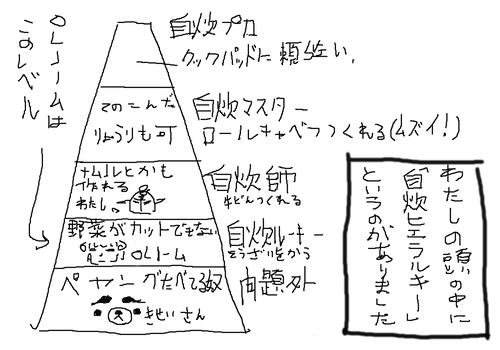 自炊プロ
クックパッドに頼らない。
てのこんだ
りょうりも可
自炊マスター
ロールキャベツつくれる(ムズイ!)
ナムルとかも
作れる
わたし。
自炊師
牛どんつくれる
野菜がカットできない
OLノーム
自炊ルーキー
そうざいをかう
ペヤングたべてる奴
きせいさん
問題外
OLノームは
このレベル
わたしの頭の中に
「自炊ヒエラルキー」
というのがありました